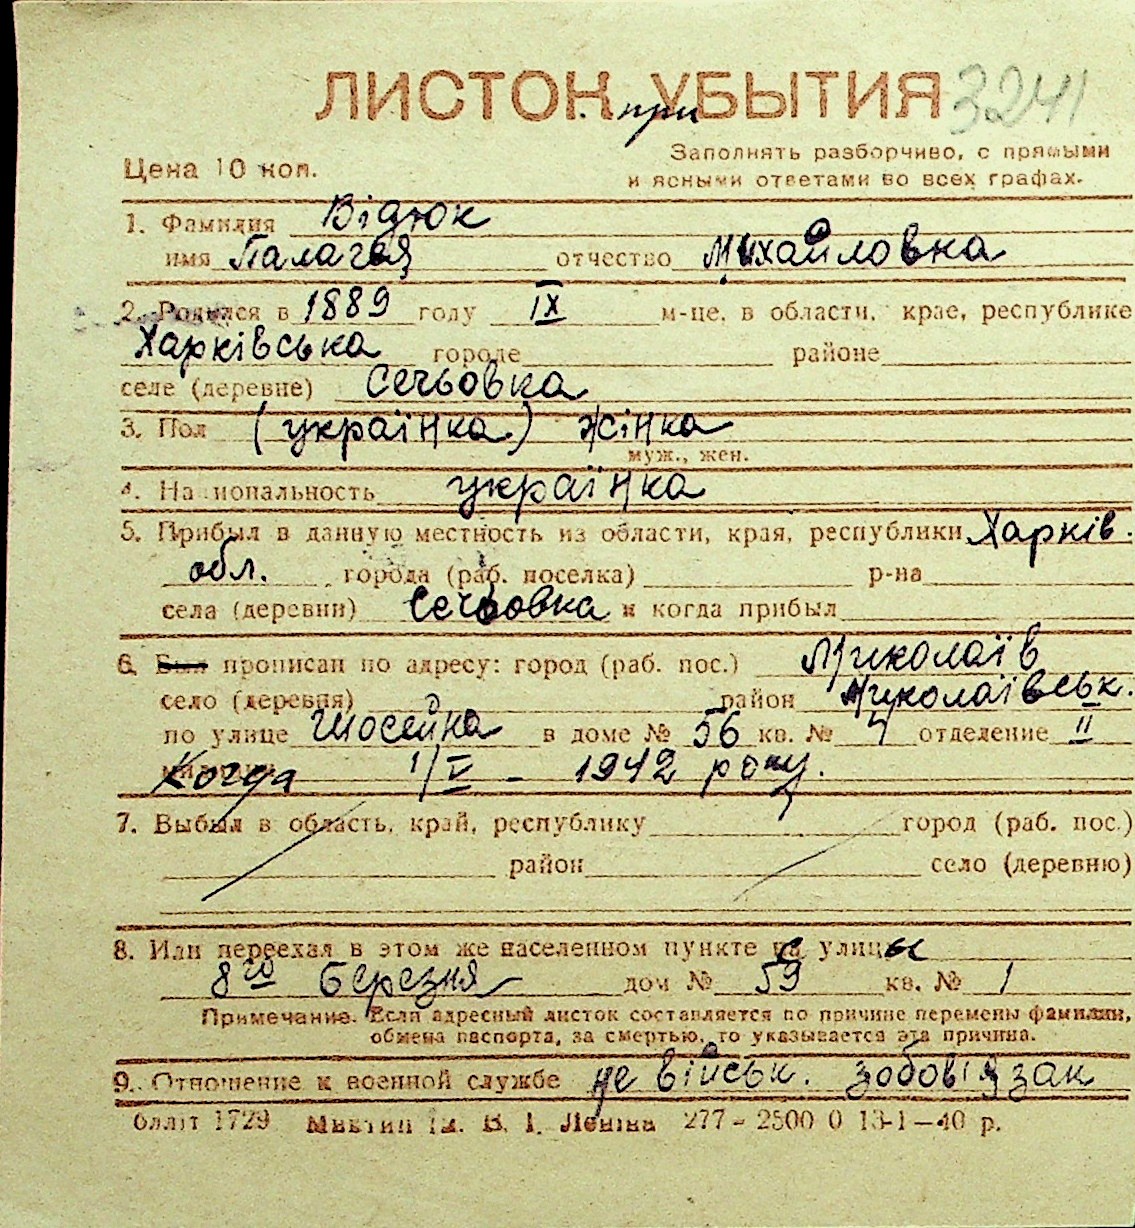 ЛИСТОК при УБЫТИЯ 3241
Цена 10 коп.
Заполнять разборчиво, с прямыми
и ясными ответами во всех графах.
1. Фамилия Відюк
имя Палагея отчество Михайловка
2. Родился в 1889 году IX м-це, в области, крае, республике
Харківська городе районе
селе (деревне) Сечьовка
3. Пол (українка) жінка
муж., жен.
4. Национальность українка
5. Прибыл в данную местность из области, края, республики Харків.
обл. города (раб. поселка) р-на
села (деревни) Сечьовка и когда прибыл
6. Был прописан по адресу: город (раб. пос.) Миколаїв
село (деревня) район Миколаївськ.
по улице Шосейна в доме № 56 кв. № 4 отделение II
Когда 1/V - 1942 року.
7. Выбыл в область, край, республику город (раб. пос.)
район село (деревню)
8. Или переехал в этом же населенном пункте с улицы
8го Березня дом № 59 кв. № 1
Примечание. Если адресный листок составляется по причине перемены фамилии,
обмена паспорта, за смертью, то указывается эта причина.
9. Отношение к военной службе не військ. зобов'язак
1729 В. І. Леніна 277 - 2500 0 13-1-40 р.